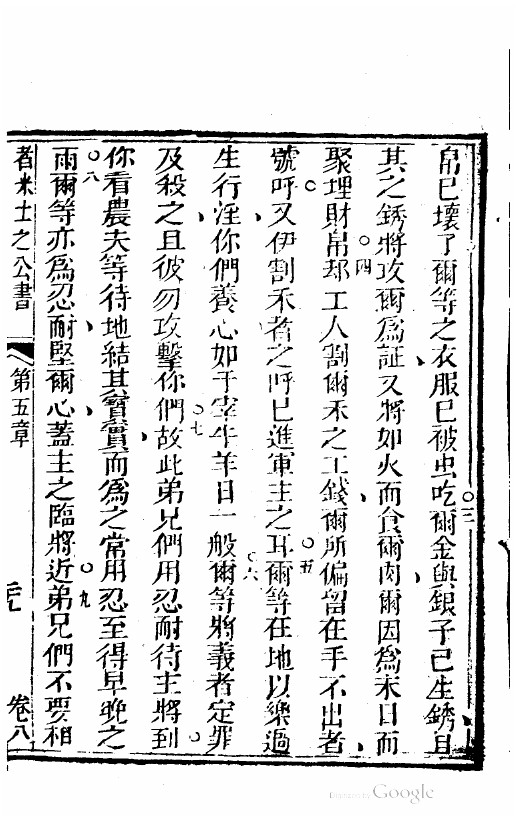 帛已壞了爾等之衣服已被虫吃○三爾金與銀子已生銹且
其之銹將攻爾爲証又將如火而食爾肉爾因爲末日而
聚埋財帛○四却工人割爾禾之工錢爾所偏留在手不出者
號呼又伊割禾者之呼已進軍主之耳○五爾等在地以樂過
生行淫你們養心如于宰牛羊日一般○六爾等將義者定罪
及殺之且彼勿攻擊你們○七故此弟兄們用忍耐待主將到
你看農夫等待地結其寶實而爲之常用忍至得早晚之
雨○八爾等亦爲忍耐堅爾心蓋主之臨將近○九弟兄們不要相
者米士之公書 第五章 二九 卷八
Digitized by Google